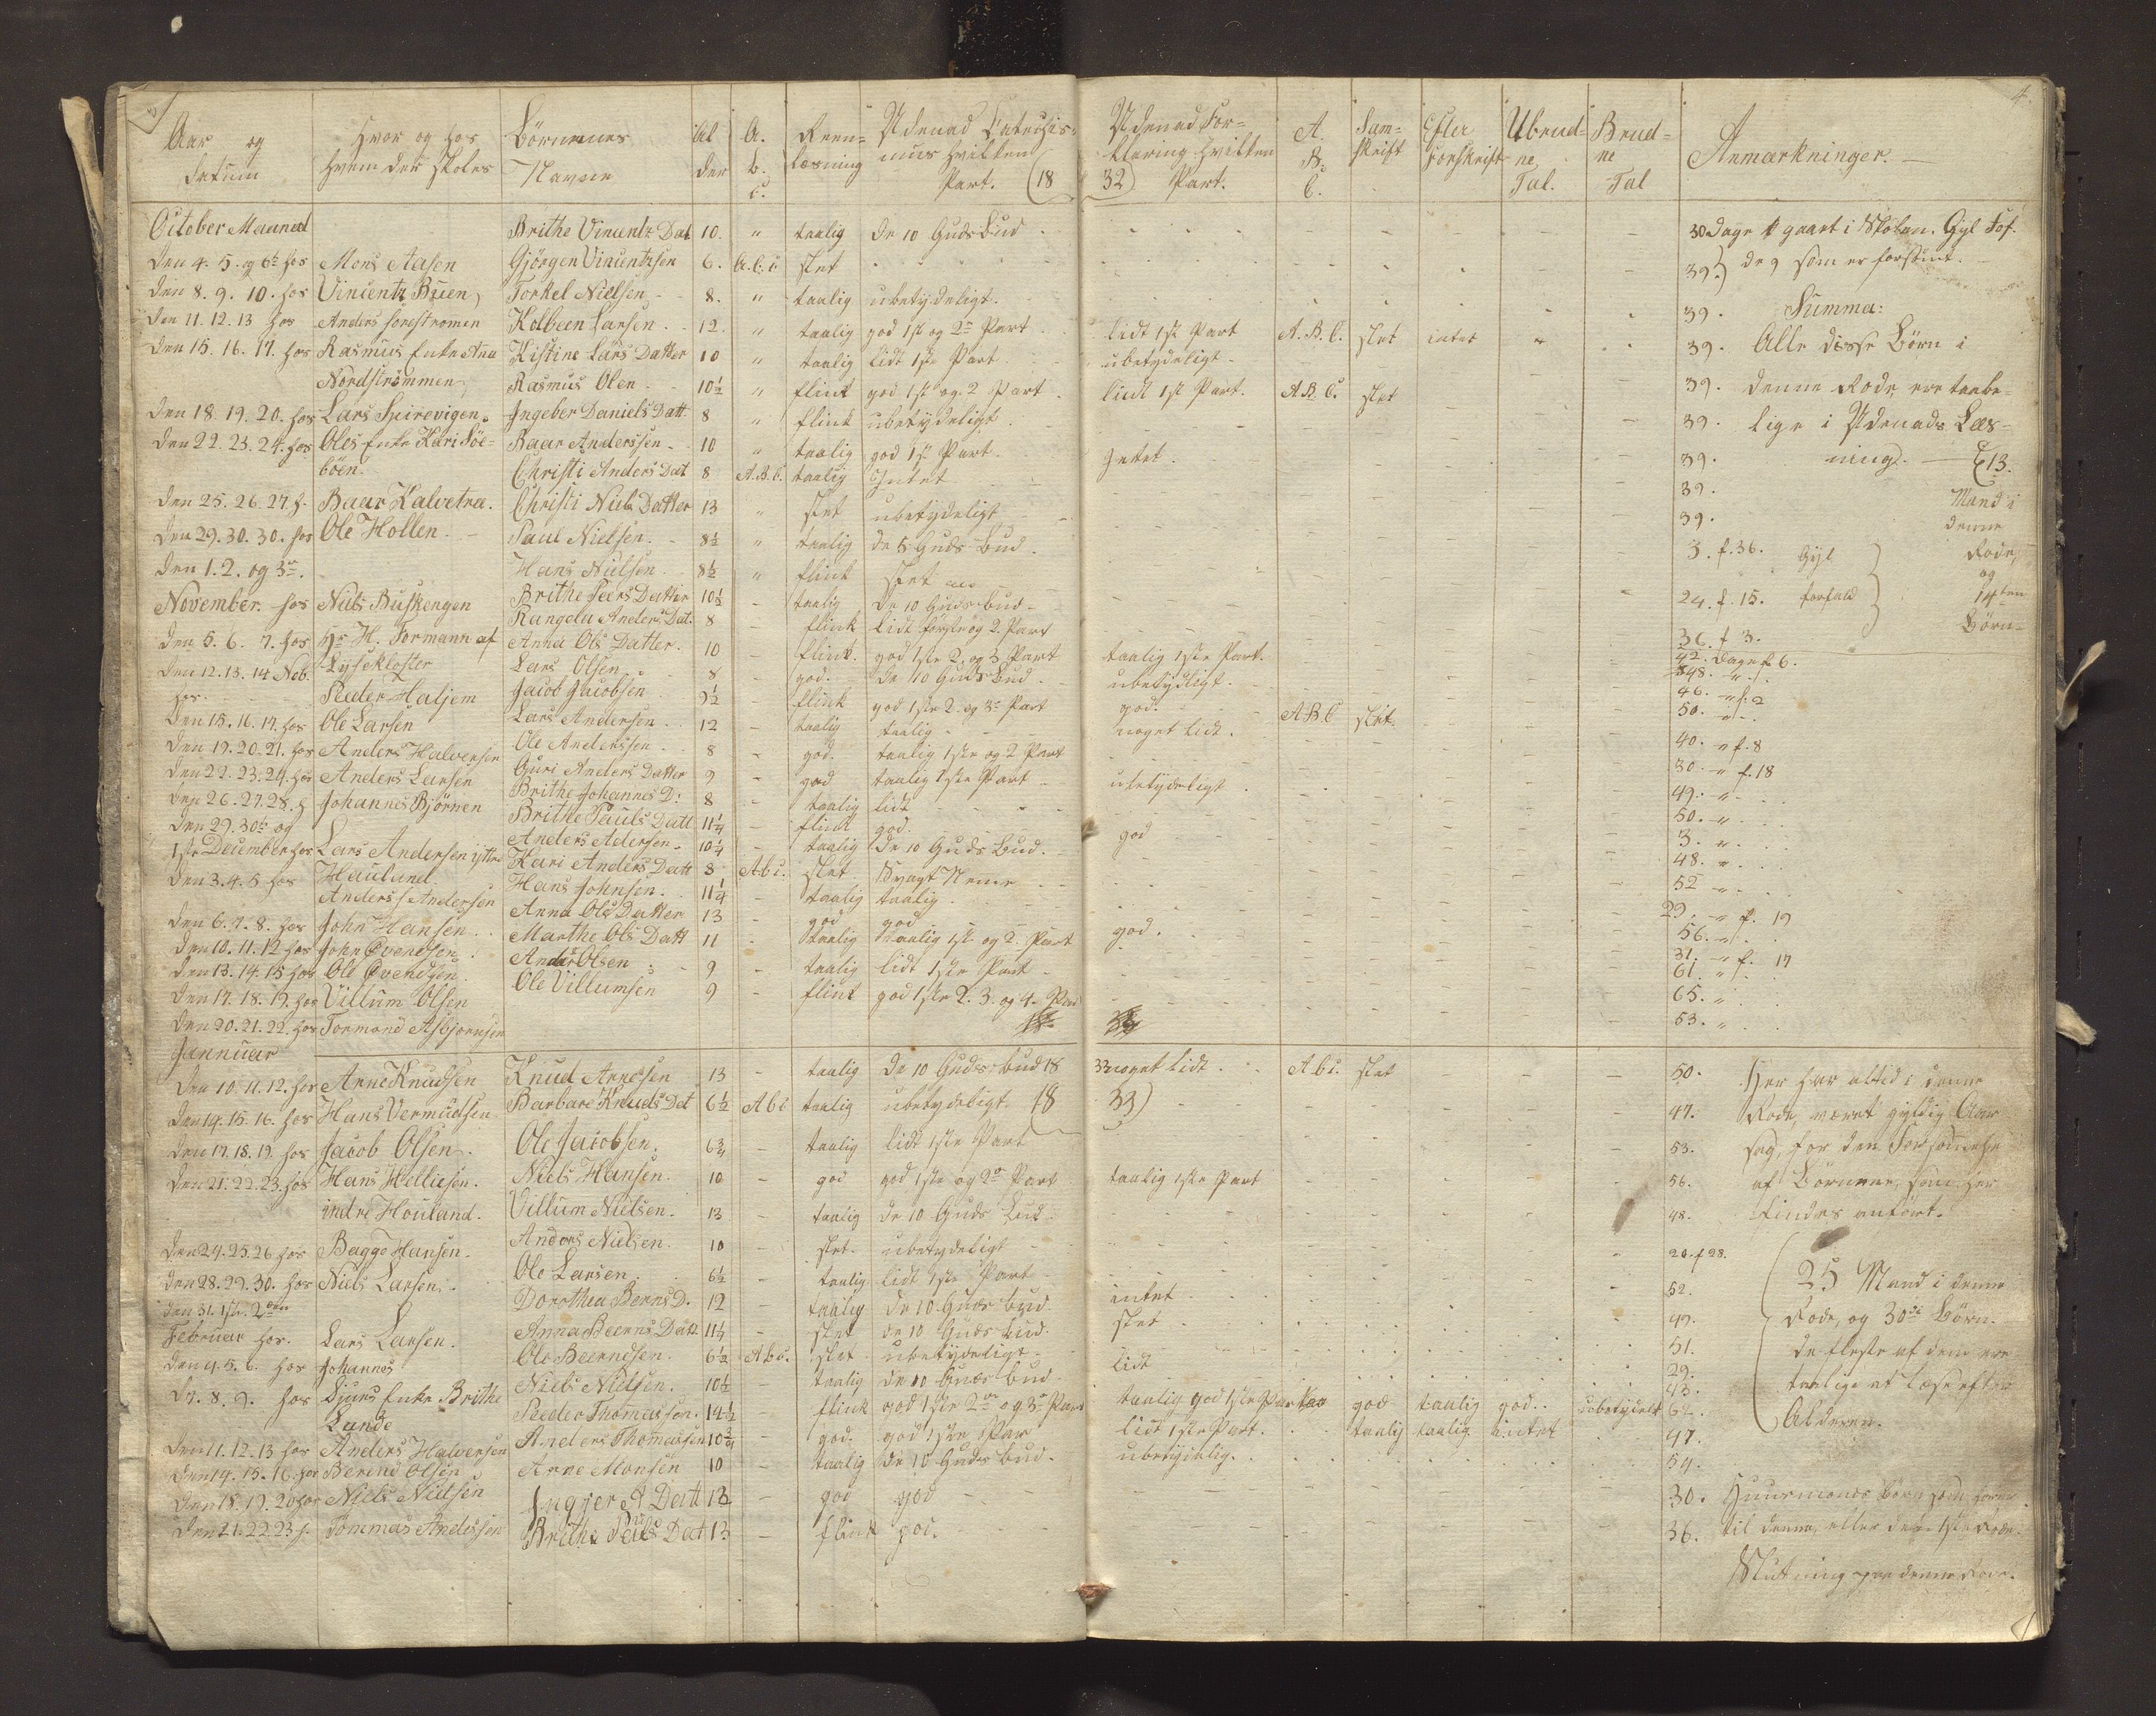 Aar og Datum | Hvor og hos hvem der skoles | Börnenes Navne | Alder | A. b. c. | Reenlæsning | Udenad Catechismus hvilken Part. (18
October Maaned | | Brithe Vincentz Dat | 10. | " | taalig | de 10 Guds Bud
den 4. 5. og 6te hos | Mons Aasen | Gjörgen Vincentzsen | 6. | A. b. c. | slet
den 8. 9. 10. hos | Vincentz Buen | Torkel Nielsen | 8. | " | taalig | ubetydeligt.
den 11. 12. 13 hos | Anders | Kolbeen Larsen | 12. | " | taalig | god 1ste og 2den Part
den 15. 16. 17. hos | Rasmus Enke Ana | Kistine Lars Datter | 10 | " | taalig | lidt 1ste Part
Nordströmmen | Rasmus Olen | 10½ | " | flink | god 1st og 2 Part
den 18. 19. 20. hos | Lars Speirevigen | Ingeber Daniels Datt | 8 | " | flink | ubetydeligt
den 22. 23. 24. hos | Oles Enke Kari Söe- | Baar Anderssen | 10 | " | taalig | god 1st Part.
böen. | Christi Anders Dat | 8 | A. B. C. | taalig | Intet
den 25. 26. 27. h. | Baar Kalvetra. | Christi Niels Datter | 13 | " | slet | ubetydeligt
den 29. 30. 30. hos | Ole Hollen | Paul Nielsen. | 8½ | " | taalig | de 5 Guds Bud.
den 1. 2. og 3die. | | Hans Nielsen | 8½ | " | flink | slet
November. hos | Niels Buskengen | Brithe Peers Datter | 10½ | - | taalig | de 10 Guds bud
| | Rangela Anders Dat. | 8 | - | flink | lidt förste og 2. Part
den 5. 6. 7. hos | Hr. H. Formann af | Anna Ols Datter. | 10 | - | flink. | god 1ste 2. og 3 Part
den 12. 13. 14 Nob. | Lysekloster | Lars Olsen | 8 | - | god. | de 10 Guds Bud
hos. | Peder Haljem | Jacob Jacobsen | 9½ | - | flink | god 1ste 2. og 3de Part
den 15. 16. 17. hos | Ole Larsen | Lars Andersen | 12 | - | taalig | taalig
den 19. 20. 21. hos | Anders Halversen | Ole Anderssen | 8 | - | god. | taalig 1ste og 2 Part
den 22. 23. 24. hos | Anders Larsen | Guri Anders Datter | 9 | - | god | taalig 1ste Part
den 26. 27. 28. h | Johannes Björnen | Brithe Johannes D: | 8 | - | taalig | lidt
den 29. 30te og | | Brithe Pauls Datt | 11¼ | - | flink | god.
1ste December hos | Lars Andersen yttre | Anders Adersen | 10¼ | - | taalig | de 10 Guds Bud.
| Hauland | Kari Anders Datt | 8 | A b c. | slet | Svagt Neme
den 3. 4. 5 hos | Anders Andersen | Hans Johnsen. | 11¼ | - | taalig | taalig
den 6. 7. 8. hos | John Hansen | Anna Ols Datter | 13 | - | god | god
den 10. 11. 12 hos | John Övendsen | Marthe Ols Datt | 11 | - | taalig | taalig 1st og 2. Part
den 13. 14. 15 hos | Ole Övendsen | Anders Olsen | 9 | - | taalig | lidt 1ste Part
den 17. 18. 19. hos | Villum Olsen | Ole Villumsen | 9 | - | flink | god 1ste 2. 3. og 4. Part
den 20. 21. 22. hos | Tormond Asbjörnsen
Januar
den 10. 11. 12. hos | Arne Knudsen | Knud Arnesen | 13 | - | taalig | de 10 Guds bud 18
den 14. 15. 16. hos | Hans Vermudsen | Barbare Knuds Dat | 6½ | A b c | taalig | ubetydeligt (18
den 17. 18. 19. hos | Jacob Olsen. | Ole Jacobsen. | 6¾ | - | taalig | lidt 1ste Part
den 21. 22. 23. hos | Hans Helliesen. | Niels Hansen. | 10 | - | god | god 1ste og 2den Part
| indre Houland. | Villum Nielsen. | 13 | - | taalig | de 10 Guds Bud
den 24. 25. 26 hos | Bagge Hansen. | Anders Nielsen. | 10 | - | slet. | ubetydeligt
den 28. 29. 30. hos | Niels Larsen. | Ole Larsen | 6½ | - | taalig | lidt 1ste Part
den 31. 1ste. 2den | | Dorothea Bernes D. | 12 | - | taalig | de 10 Guds Bud.
Februar hos. | Lars Larsen. | Anna Beerns Datt | 11¼ | - | slet | de 10 Guds Bud.
den 4. 5. 6. hos | Johannes | Ole Beerndsen. | 6½ | A b c. | slet | ubetydeligt
D. 7. 8. 9. hos | Sjurs Enke Brithe | Niels Nielsen. | 10½ | - | taalig | de 10 Guds Bud
| Lunde | Peeder Thomassen. | 14½ | - | flink | god 1ste 2den og 3de Part
den 11. 12. 13 hos | Anders Halversen | Anders Thomassen | 10¾ | - | god. | god 1ste Par
den 14. 15. 16. hos | Berend Olsen | Arne Monsen | 10 | - | taalig | de 10 Guds Bud.
den 18. 19. 20 hos | Niels Nielsen | Ingjer A Datt | 13 | - | god | god
den 21. 22. 23 h. | Tommas Andersen | Brithe Peils Dat | 13 | - | flink | god.
4.
Udenad Forklaring hvilken 32) Part. | A. B. C. | Sam-skrift | Efter Forskrift | Ubrudne Tal. | Brudne Tal | Anmærkninger.
30 dage gaaet i Skolen. Gyl Fof.
39.) de 9 som er forsömt.
39. Summa:
lidt 1ste Part | A. B. C. | slet | intet | 39. Alle disse Börn i
ubetydeligt
lidt 1st Part. | A B C. | slet | 39. denne Rode, ere taabe-
39. lige i Udenads Læs-
Intet. | 39. ning. 13.
39. Mand i
39. denne
3. f. 36. Gyl | Rode,
og
24. f. 15. forfald | 14ten
36. f 3. | Börn
taalig 1ste Part. | 42. Dage f. 6.
ubetydligt. | 48. "
god. | 46. " f. 2
noget lidt. | A B C | slet. | 50. "
40. " f. 8
30. " f. 18
ubetydeligt | 49. "
50. "
god | 3. "
48. "
52 "
29. " f. 19
god. | 56. "
31. " f. 17
61. "
65. "
53. "
33 noget lidt. | A b c. | slet | 50. Her har altid i denne
33) | 47. Rode, været gyldig Aar-
53. sag, for den Forsömelse
taalig 1ste Part | 56. af Börnene, som her
48. findes anfört.
20. f 28.
intet | 52. 25 Mand i denne
slet | 49. Rode, og 30de Börn.
51. de fleste af dem ere
lidt | 29.
43. taalige at læse efter
taalig god 1ste Part | god | taalig | god. | ubetydelt | 62. Alderen.
lidt 1ste Part. | taalig | taalig | intet | 47.
ubetydelig. | 54.
30. Huusmands Börn som hörer
36. til denne, eller den 1ste Rode.
Slutning paa denne Rode.